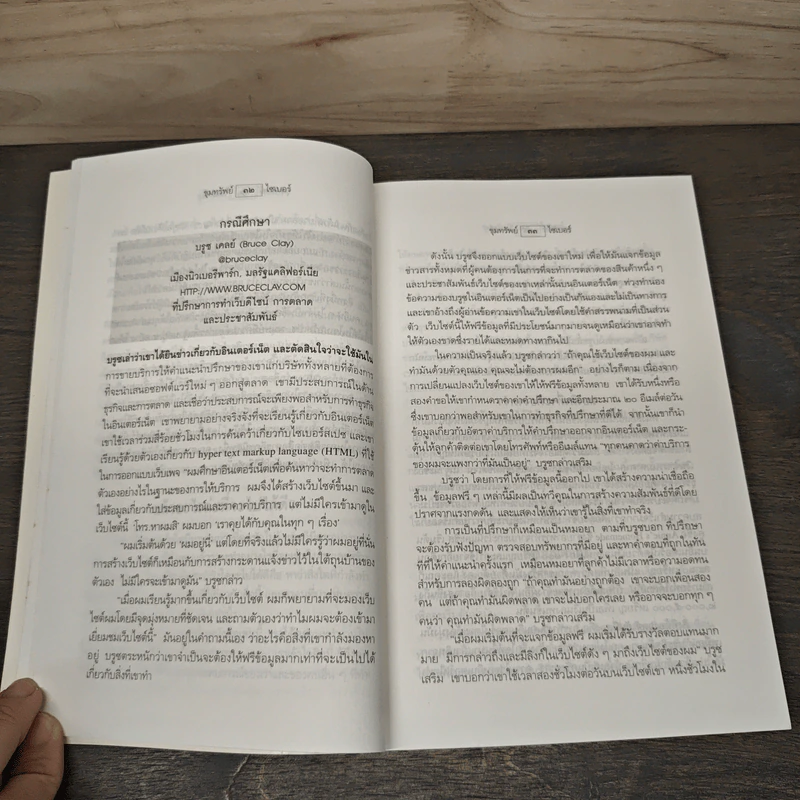 ขุมทรัพย์ ๓๒ ไซเบอร์
กรณีศึกษา
บรูซ เคลย์ (Bruce Clay)
@bruceclay
เมืองนิวเบอรีพาร์ก, มลรัฐแคลิฟอร์เนีย
HTTP://WWW.BRUCECLAY.COM
ที่ปรึกษาการทำเว็บดีไซน์ การตลาด
และประชาสัมพันธ์
บรูซเล่าว่าเขาได้ยินข่าวเกี่ยวกับอินเตอร์เน็ต และตัดสินใจว่าจะใช้มันใน
การขายบริการให้คำแนะนำปรึกษาของเขาแก่บริษัททั้งหลายที่ต้องการ
ที่จะนำเสนอซอฟต์แวร์ใหม่ ๆ ออกสู่ตลาด เขามีประสบการณ์ในด้าน
ธุรกิจและการตลาด และเชื่อว่าประสบการณ์จะเพียงพอสำหรับการทำธุรกิจ
ในอินเตอร์เน็ต เขาพยายามอย่างจริงจังที่จะเรียนรู้เกี่ยวกับอินเตอร์เน็ต
เขาใช้เวลาร่วมสี่ร้อยชั่วโมงในการค้นคว้าเกี่ยวกับไซเบอร์สเปซ และเขา
เรียนรู้ด้วยตัวเองเกี่ยวกับ hyper text markup language (HTML) ที่ใช้
ในการออกแบบเว็บเพจ “ผมศึกษาอินเตอร์เน็ตเพื่อค้นหาว่าจะทำการตลาด
ตัวเองอย่างไรในฐานะของการให้บริการ ผมจึงได้สร้างเว็บไซต์ขึ้นมา และ
ใส่ข้อมูลเกี่ยวกับประสบการณ์และราคาค่าบริการ แต่ไม่มีใครเข้ามาดูใน
เว็บไซต์นี้ ‘โทร.หาผมสิ’ ผมบอก ‘เราคุยได้กับคุณในทุก ๆ เรื่อง’
“ผมเริ่มต้นด้วย ‘ผมอยู่นี่’ แต่โดยที่จริงแล้วไม่มีใครรู้ว่าผมอยู่ที่นั่น
การสร้างเว็บไซต์ก็เหมือนกับการสร้างกระดานแจ้งข่าวไว้ในใต้ถุนบ้านของ
ตัวเอง ไม่มีใครจะเข้ามาดูมัน” บรูซกล่าว
“เมื่อผมเรียนรู้มากขึ้นเกี่ยวกับเว็บไซต์ ผมก็พยายามที่จะมองเว็บ
ไซต์ผมโดยมีจุดมุ่งหมายที่ชัดเจน และถามตัวเองว่าทำไมผมจะต้องเข้ามา
เยี่ยมชมเว็บไซต์นี้” มันอยู่ในคำถามนี้เอง ว่าอะไรคือสิ่งที่เขากำลังมองหา
อยู่ บรูซตระหนักว่าเขาจำเป็นจะต้องให้ฟรีข้อมูลมากเท่าที่จะเป็นไปได้
เกี่ยวกับสิ่งที่เขาทำ
ขุมทรัพย์ ๓๓ ไซเบอร์
ดังนั้น บรูซจึงออกแบบเว็บไซต์ของเขาใหม่ เพื่อให้มันแจกข้อมูล
ข่าวสารทั้งหมดที่ผู้คนต้องการในการที่จะทำการตลาดของสินค้าหนึ่ง ๆ
และประชาสัมพันธ์เว็บไซต์ของเขาเหล่านั้นบนอินเตอร์เน็ต ท่วงทำนอง
ข้อความของบรูซในอินเตอร์เน็ตเป็นไปอย่างเป็นกันเองและไม่เป็นทางการ
และเขาอ้างถึงผู้อ่านข้อความเขาในเว็บไซต์โดยใช้คำสรรพนามที่เป็นส่วน
ตัว เว็บไซต์นี้ให้ฟรีข้อมูลที่มีประโยชน์มากมายจนดูเหมือนว่าเขาอาจทำ
ให้ตัวเองขาดซึ่งรายได้และหมดทางหากินไป
ในความเป็นจริงแล้ว บรูซกล่าวว่า “ถ้าคุณใช้เว็บไซต์ของผม และ
ทำมันด้วยตัวคุณเอง คุณจะไม่ต้องการผมอีก” อย่างไรก็ตาม เนื่องจาก
การเปลี่ยนแปลงเว็บไซต์ของเขาให้ให้ฟรีข้อมูลทั้งหลาย เขาได้รับหนึ่งหรือ
สองคำขอให้เขากำหนดราคาค่าคำปรึกษา และอีกประมาณ ๒๐ อีเมล์ต่อวัน
ซึ่งเขาบอกว่าพอสำหรับเขาในการทำธุรกิจที่ปรึกษาที่ดีได้ จากนั้นเขาก็นำ
ข้อมูลเกี่ยวกับอัตราค่าบริการให้คำปรึกษาออกจากอินเตอร์เน็ต และกระ-
ตุ้นให้ลูกค้าติดต่อเขาโดยโทรศัพท์หรืออีเมล์แทน “ทุกคนคาดว่าค่าบริการ
ของผมจะแพงกว่าที่มันเป็นอยู่” บรูซกล่าวเสริม
บรูซว่า โดยการที่ให้ฟรีข้อมูลนี้ออกไป เขาได้สร้างความน่าเชื่อถือ
ขึ้น ข้อมูลฟรี ๆ เหล่านี้มีผลเป็นทวีคูณในการสร้างความสัมพันธ์ที่ดีโดย
ปราศจากแรงกดดัน และแสดงให้เห็นว่าเขารู้ในสิ่งที่เขาทำจริง
การเป็นที่ปรึกษาก็เหมือนเป็นหมอยา ตามที่บรูซบอก ที่ปรึกษา
จะต้องรับฟังปัญหา ตรวจสอบทรัพยากรที่มีอยู่ และหาคำตอบที่ถูกในทัน
ทีที่ให้คำแนะนำครั้งแรก เหมือนหมอยาที่ลูกค้าไม่มีเวลาหรือความอดทน
สำหรับการลองผิดลองถูก “ถ้าคุณทำมันอย่างถูกต้อง เขาจะบอกเพื่อนสอง
คน แต่ถ้าคุณทำมันผิดพลาด เขาจะไม่บอกใครเลย หรืออาจจะบอกทุก ๆ
คนว่า คุณทำมันผิดพลาด” บรูซกล่าวเสริม
“เมื่อผมเริ่มต้นที่จะแจกข้อมูลฟรี ผมเริ่มได้รับรางวัลตอบแทนมาก
มาย มีการกล่าวถึงและมีลิงก์ในเว็บไซต์ดัง ๆ มาถึงเว็บไซต์ของผม” บรูซ
เสริม เขาบอกว่าเขาใช้เวลาสองชั่วโมงต่อวันบนเว็บไซต์เขา หนึ่งชั่วโมงใน